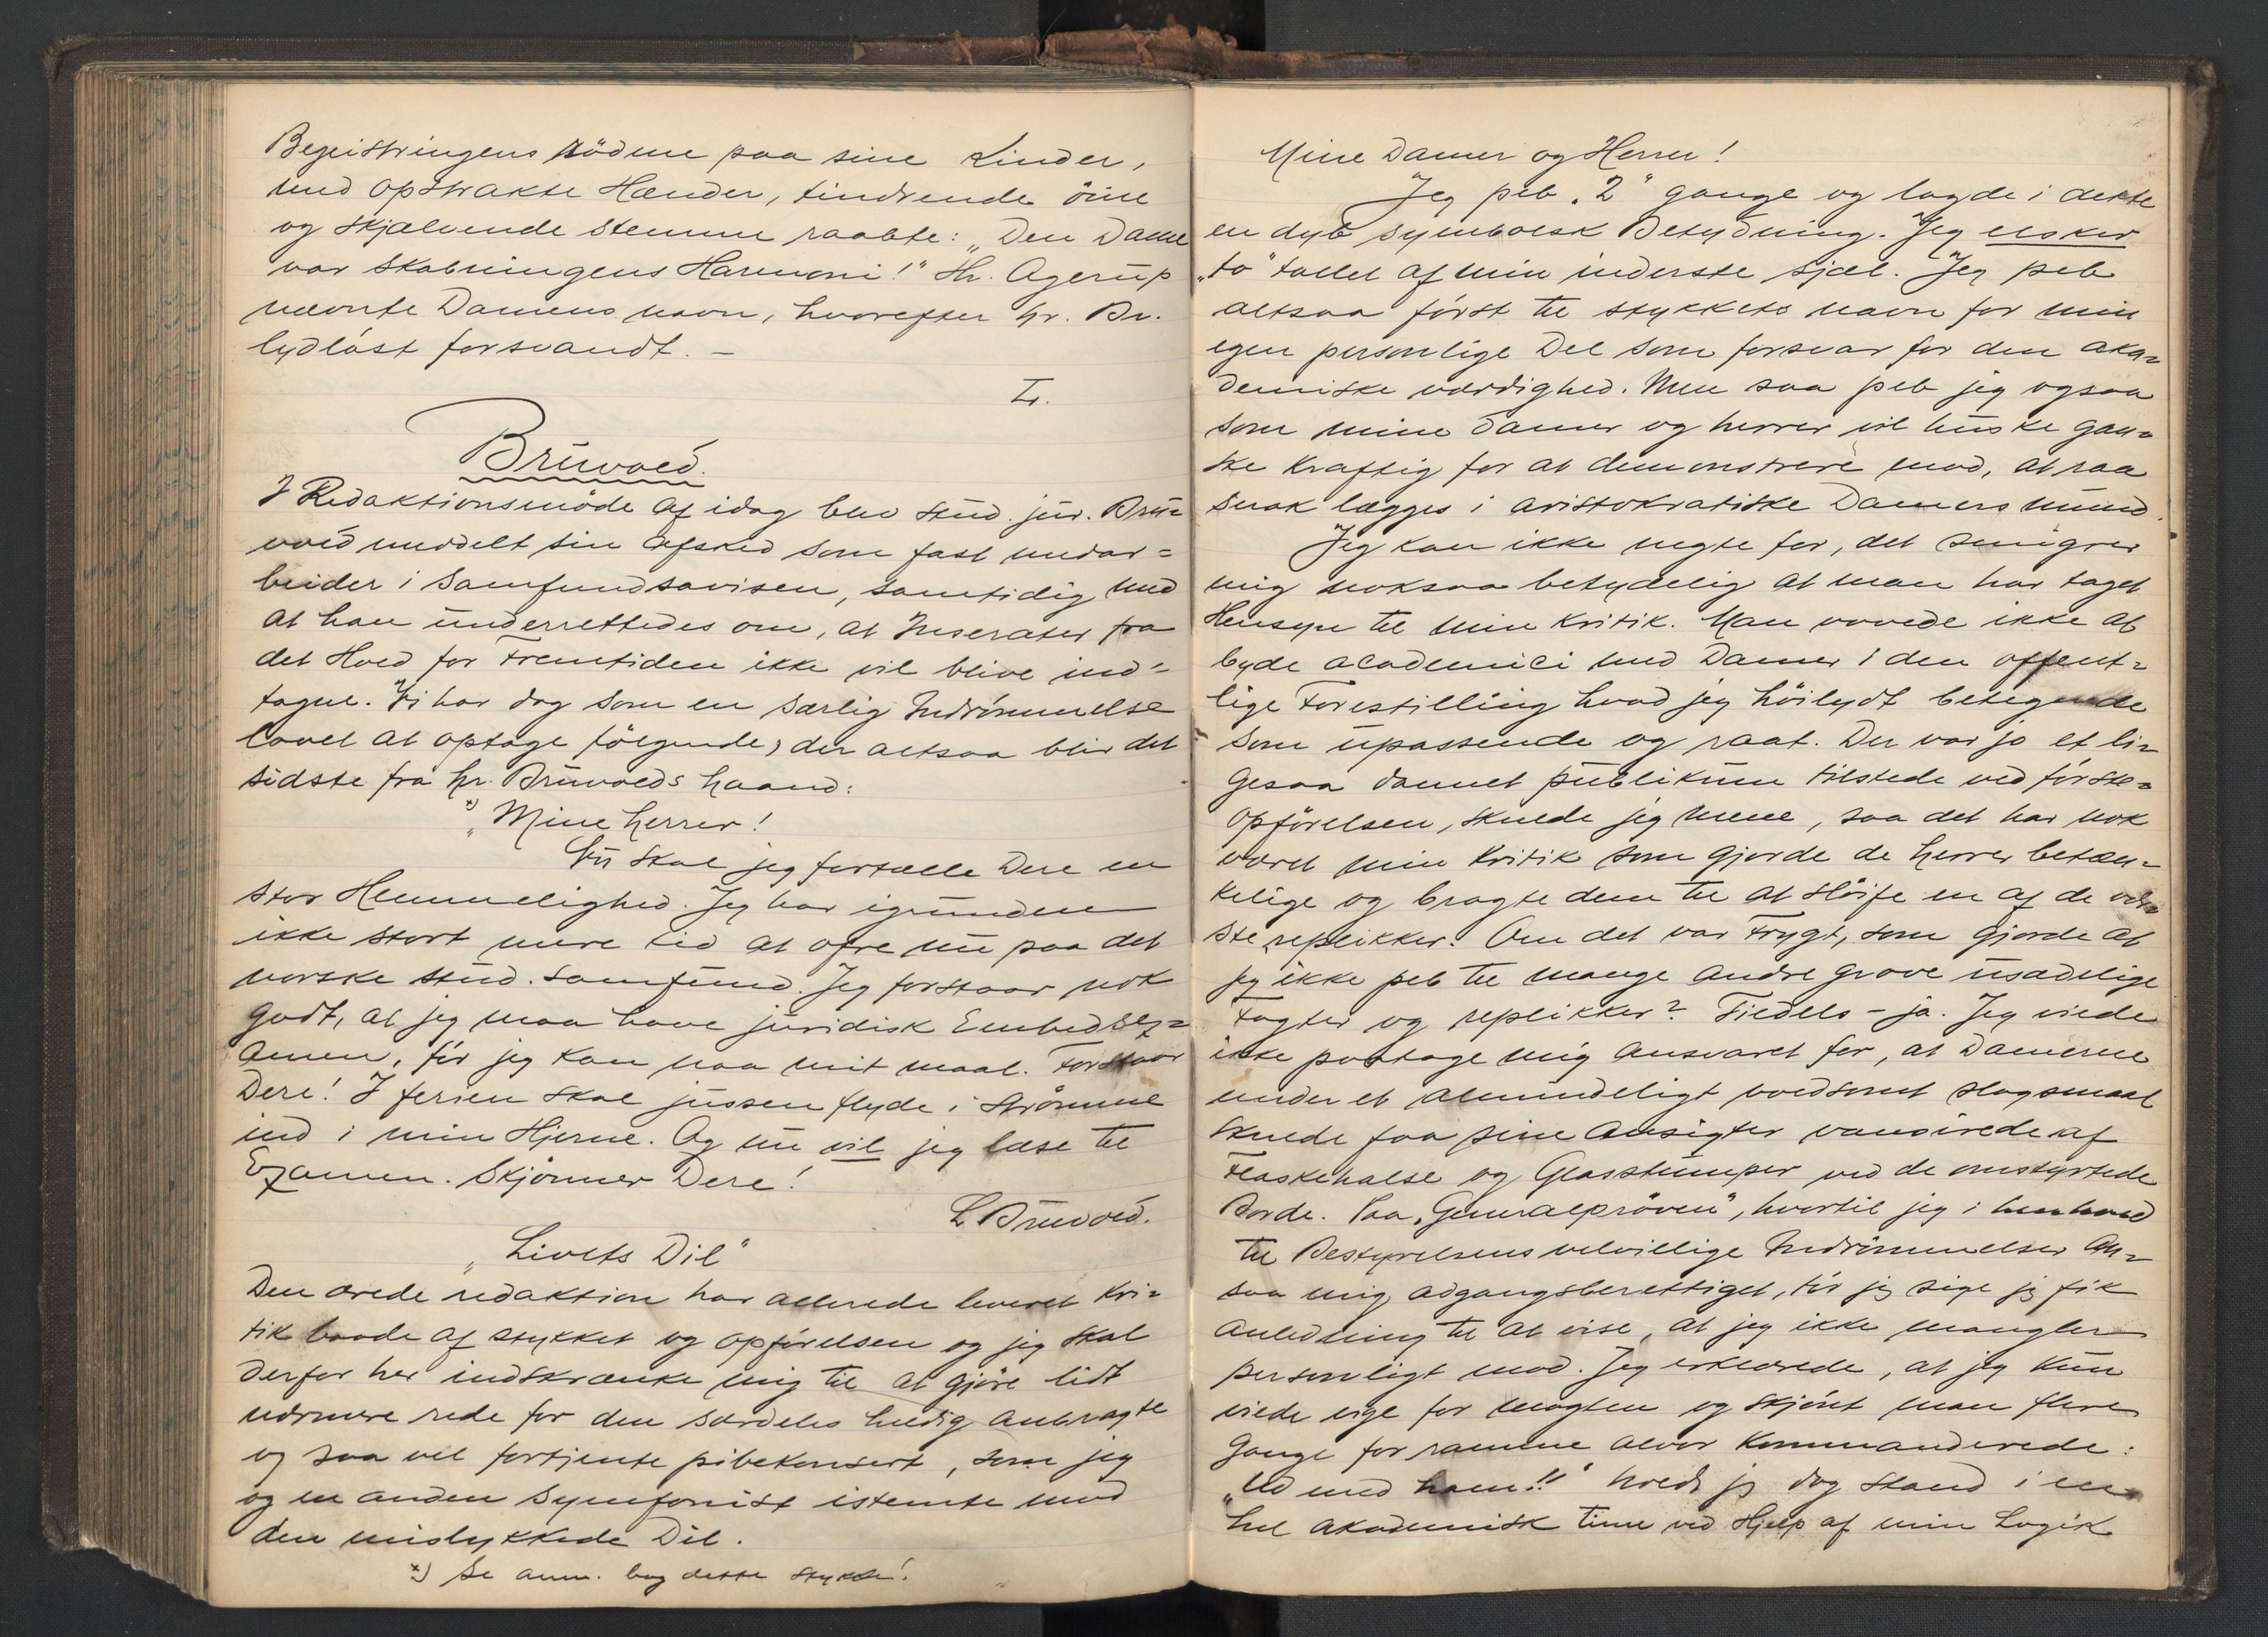 Begeistringens Rödme paa sine Kinder,
med opstrakte Hænder, tindrende öine
og skjælvende Stemme raabte: „Den Dame
var Skabningens Harmoni!" Hr. Agerup
nævnte Damens navn, hvorefter hr. Br.
lydlöst forsvandt. –
I.
Bruvold.
I Redaktionsmöde af idag blev stud. jur. Bru=
vold meddelt sin afsked som fast medar=
beider i Samfundsavisen, samtidig med
at han underrettedes om, at Inserater fra
det Hold for Fremtiden ikke vil blive ind=
tagne. Vi har dog som en særlig Indrömmelse
lovet at optage fölgende, der altsaa blir det
sidste fra hr. Bruvolds haand:
x) „Mine herrer!
Nu skal jeg fortælle Dere en
stor Hemmelighed. Jeg har igrunden
ikke stort mere tid at ofre nu paa det
norske stud. samfund. Jeg forstaar nok
godt, at jeg maa have juridisk Embedsex=
amen, för jeg kan naa mit maal. Forstaar
Dere! I ferien skal jussen flyde i strömme
ind i min Hjerne. Og nu vil jeg læse til
Examen. Skjönner Dere!
L. Bruvold.
„Livets Dil"
Den ærede redaktion har allerede leveret kri=
tik baade af stykket og opförelsen og jeg skal
derfor her indskrænke mig til at gjöre lidt
nærmere rede for den særdeles heldig anbragte
og saa vel fortjente pibekonsert, som jeg
og en anden symfonist istemte mod
den mislykkede Dil.
x) Se anm. bag dette stykke!
Mine Damer og Herrer!
Jeg peb „2" gange og lagde i dette
en dyb symbolsk Betydning. Jeg elsker
„to"tallet af min inderste sjæl. Jeg peb
altsaa först til stykkets navn for min
egen personlige Del som forsvar for den aka=
demiske værdighed. Men saa peb jeg ogsaa
som mine damer og herrer vil huske gan=
ske kraftig for at demonstrere mod, at raa
snak lægges i aristokratiske Damers mund.
Jeg kan ikke negte for, det smigrer
mig noksaa betydelig at man har taget
Hensyn til min Kritik. Man vovede ikke at
byde academici med Damer i den offent=
lige Forestilling hvad jeg höilydt betegnede
som upassende og raat. Der var jo et li=
gesaa dannet publikum tilstede ved förste=
opförelsen, skulde jeg mene, saa det har nok
været min Kritik som gjorde de herrer betæn=
kelige og bragte dem til at slöife en af de vær=
ste replikker. Om det var Frygt, som gjorde at
jeg ikke peb til mange andre grove usædelige
Fagter og replikker? Tildels – ja. Jeg vilde
ikke paatage mig Ansvaret for, at Damerne
under et almindeligt voldsomt slagsmaal
skulde faa sine Ansigter vansirede af
Flaskehalse og Glasstumper ved de omstyrtede
Borde. Paa „Generalpröven", hvortil jeg i henhold
til Bestyrelsens velvillige Indrömmelser an=
saa mig adgangsberettiget, tör jeg sige jeg fik
anledning til at vise, at jeg ikke mangler
personligt mod. Jeg erklærede, at jeg kun
vilde vige for magten og skjönt man flere
Gange for ramme alvor kommanderede:
„Ud med ham!!" holdt jeg dog stand i en
hel akademisk time ved Hjelp af min Logik